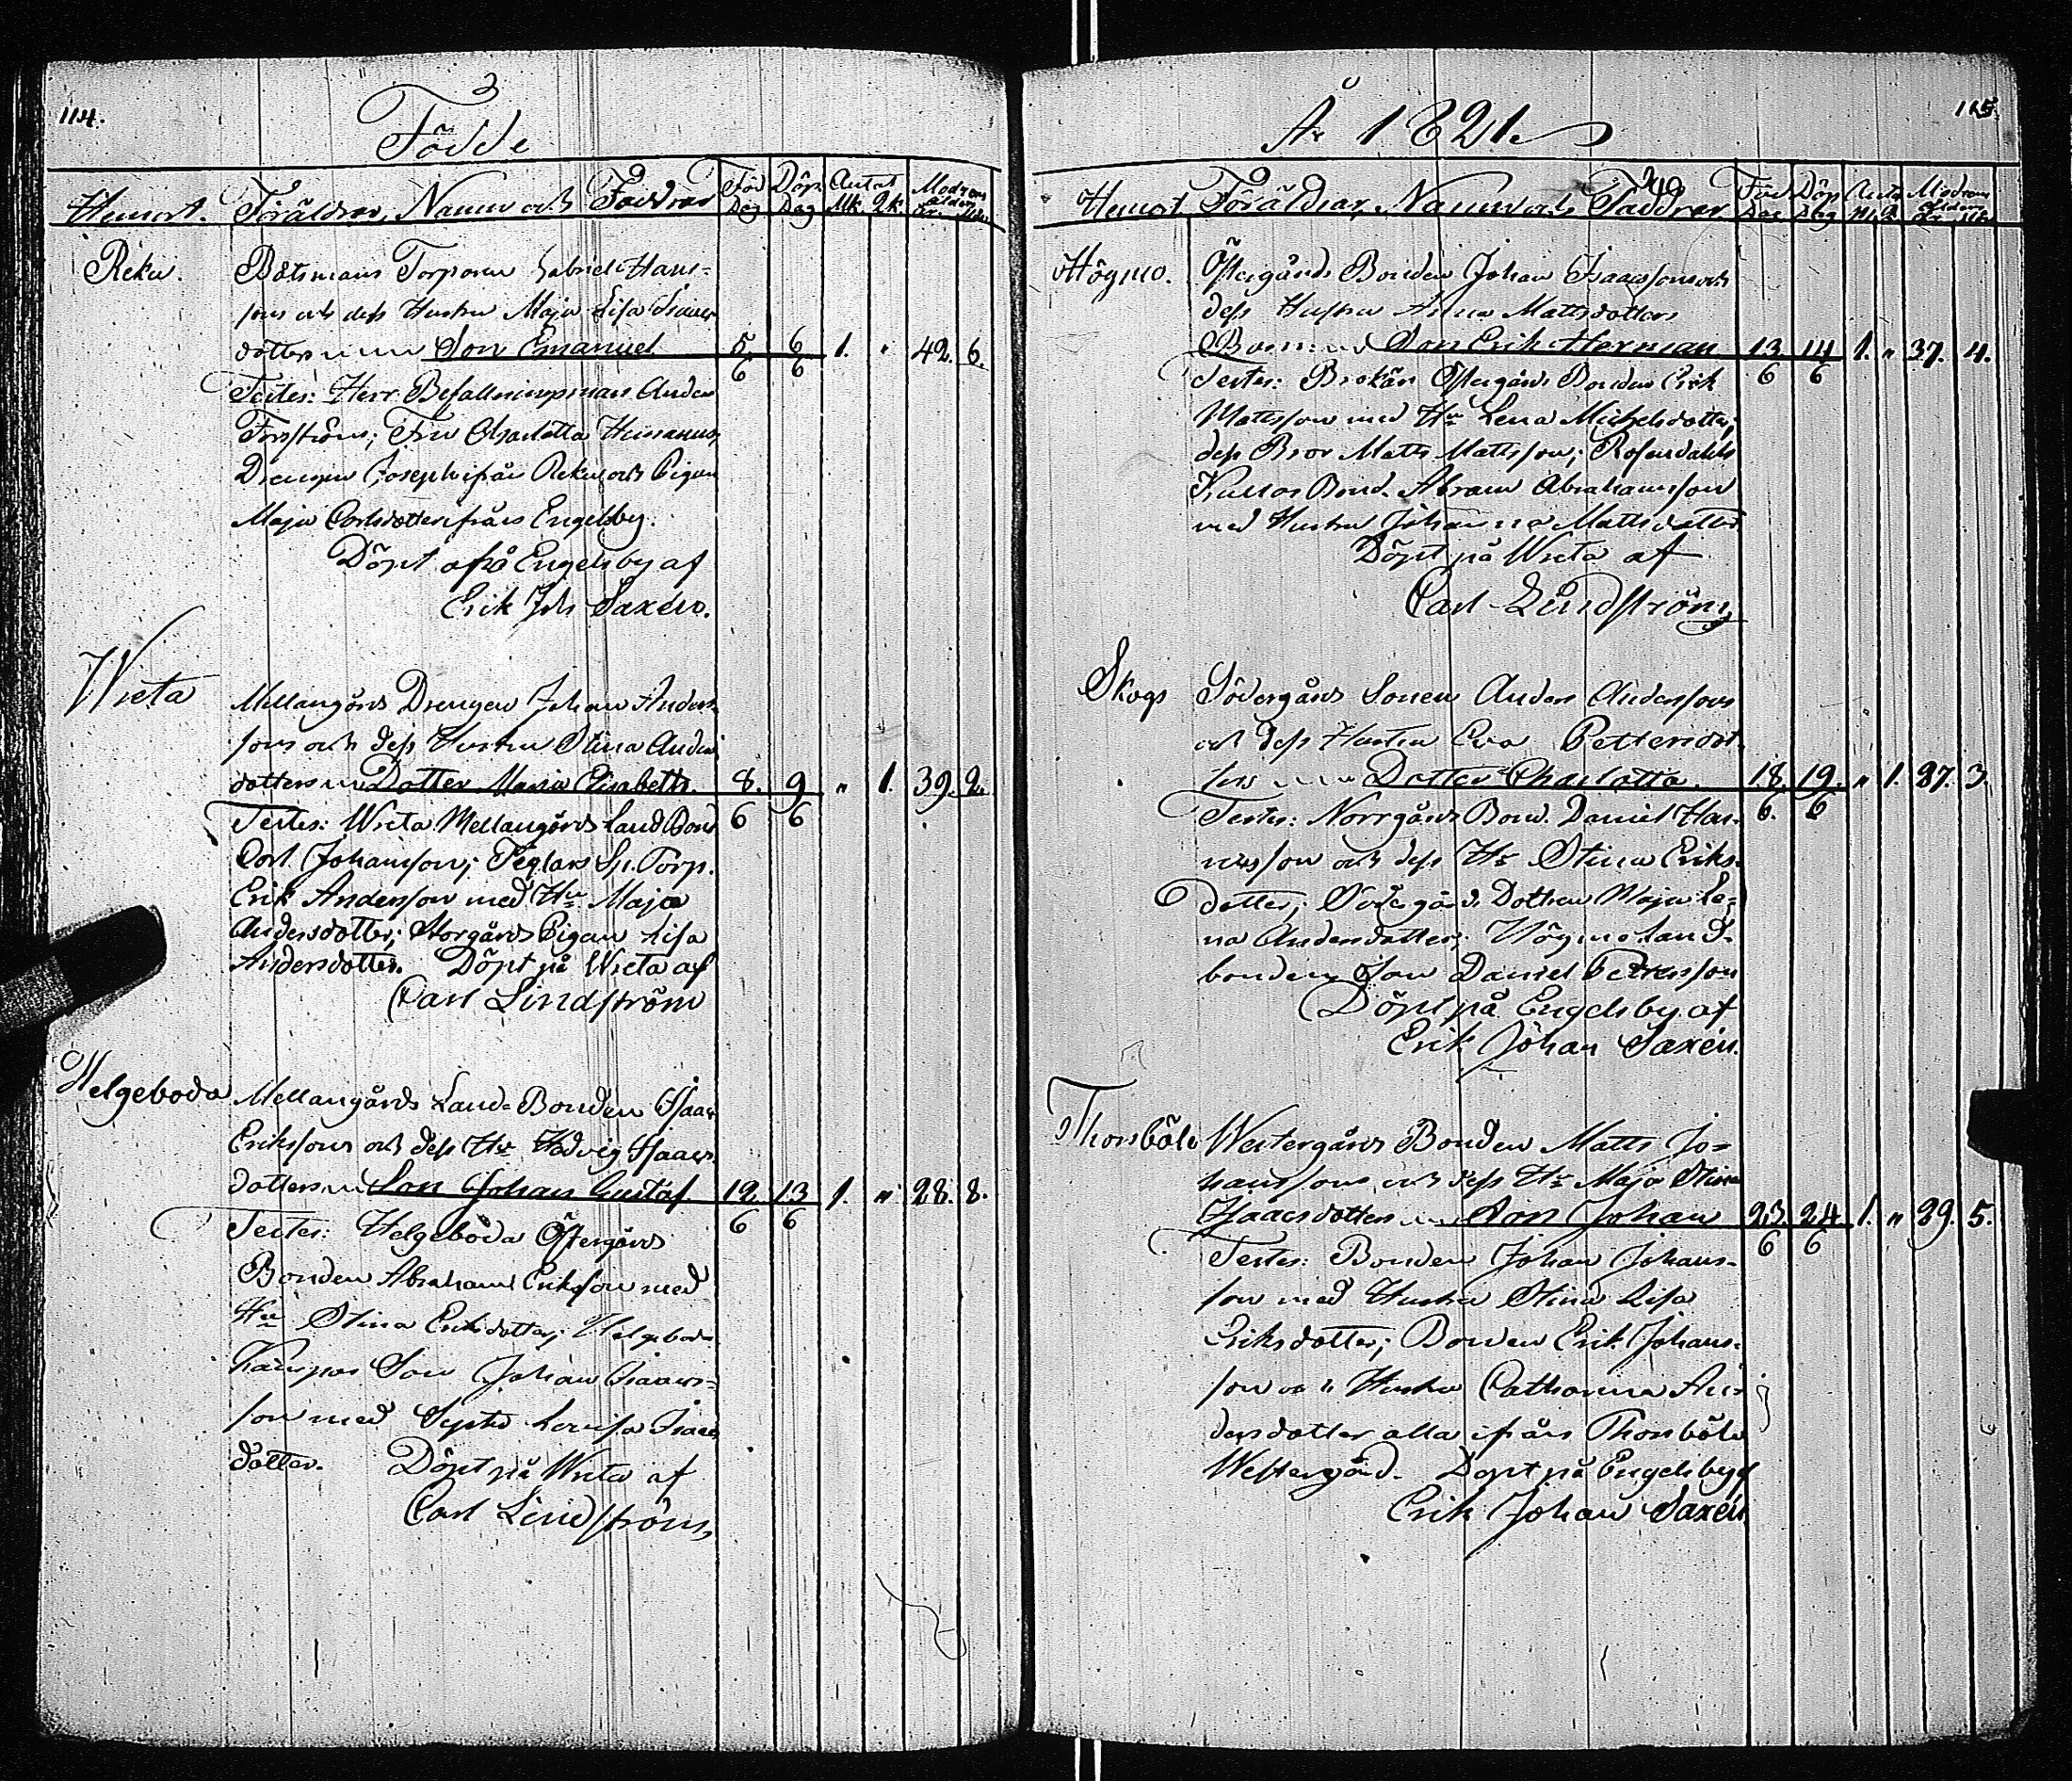 114.
Födde
Hemort. Föräldrar, Namn och Faddrar Föd Dag Döp. Dag Antal Mk. Qk. Modrens ålder År. Mån.
Reku. Båtsmans Torparen Gabriel Hans-
sons och dess Hustru Maja Lisa Isaacs
dotters Son Emanuel 5/6 6/6 1. " 42. 6.
Testes: Herr Befallningsman Anders
Forsström; Fru Charlotta
Drengen Joseph ifrån Reku och Pigan
Maja Carlsdotter ifrån Engelsby.
Döpt på Engelsby af
Erik Joh Saxén.
Wreta Mellangårds Drengen Johan Anders-
sons och dess Hustru Stina Anders
dotters Dotter Maria Elisabeth. 8./6 9/6 " 1. 39. 2.
Testes: Wreta Mellangårds Land Bond
Carl Johansson; Torp.
Erik Andersson med Hu Maja
Andersdotter; Storgårds Pigan Lisa
Andersdotter. Döpt på Wreta af
Carl Lindström
Helgeboda Mellangårds Land Bonden Isaac
Erikssons och dess Hu Hedvig Isaacs
dotters Son Johan Gustaf. 12./6 13/6 1. " 28. 8.
Testes: Helgeboda Östergårds
Bonden Abraham Eriksson med
Hu Stina Eriksdotter; Helgeboda
Son Johan Isaacs-
son med Syster Lovisa Isaacs
dotter. Döpt på Wreta af
Carl Lindström,
År 1821.
115.
Hemort Föräldrar, Namn och Faddrar Föd Dag Döp Dag Antal M. Q. Modrens ålder År Mån
Högmo. Östergårds Bonden Johan Isaacssons och
dess Hustru Anna Mattsdotters
Barn: Son Erik Herman 13./6 14/6 1. " 37. 4.
Testes: Östergårds Bonden Erik
Mattsson med Hu Lena Michelsdotter;
dess Bror Matts Mattsson; Rosendahls
Bond. Abram Abrahamsson
med Hustru Johanna Mattsdotter
Döpt på Wreta af
Carl Lindström
Skogs Södergårds Sonen Anders Anderssons
och dess Hustru Eva Pettersdot-
ters Dotter Charlotta. 18./6. 19./6 " 1. 27. 3.
Testes: Norrgårds Bond. Daniel Han-
nusson och dess Hu Stina Eriks-
dotter; Södergårds Dottren Maja Le-
na Andersdotter; Högmo Land-
bondens Son Daniel Pettersson
Döpt på Engelsby af
Erik Johan Saxén.
Thorsböle Westergårds Bonden Matts Jo-
hanssons och dess Hu Maja Stina
Isaacsdotters Son Johan 23./6 24/6 1. " 29. 5.
Testes: Bonden Johan Johans-
son med Hustru Stina Lisa
Eriksdotter; Bonden Erik Johans-
son och Hustru Catharina An-
dersdotter alla ifrån Thorsböle
Westergård. Döpt på Engelsby af
Erik Johan Saxén